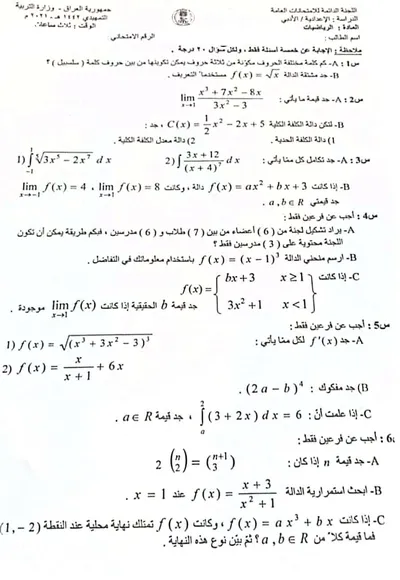 جمهورية العراق - وزارة التربية
اللجنة الدائمة للامتحانات العامة
التمهيدي ١٤٤٢ هـ - ٢٠٢١ م
الدراسة : الإعدادية / الأدبي
الوقت : ثلاث ساعات
المادة : الرياضيات
اسم الطالب : الرقم الامتحاني :
ملاحظة : الإجابة عن خمسة أسئلة فقط ، ولكل سؤال ٢٠ درجة .
س1 : A- كم كلمة مختلفة الحروف مكونة من ثلاثة حروف يمكن تكوينها من بين حروف كلمة ( سلسبيل ) ؟
B- جد مشتقة الدالة f(x) = √x مستخدما" التعريف .
س2 : A- جد قيمة ما يأتي : lim (x³ + 7x² − 8x) / (3x² − 3) x→1
B- لتكن دالة الكلفة الكلية C(x) = 1/2 x² − 2x + 5 ، جد :
1) دالة الكلفة الحدية . 2) دالة معدل الكلفة الكلية .
س3 : A- جد تكامل كل مما يأتي : 1) ∫₋₁¹ ∛(3x⁵ − 2x⁷) dx 2) ∫ (3x + 12) / (x + 4)⁷ dx
B- إذا كانت f(x) = ax² + bx + 3 دالة ، وكانت lim f(x) = 8 ، lim f(x) = 4 x→1
جد قيمتي a , b ∈ R .
س4 : أجب عن فرعين فقط :
A- يراد تشكيل لجنة من ( 6 ) أعضاء من بين ( 7 ) طلاب و ( 6 ) مدرسين ، فبكم طريقة يمكن أن تكون
اللجنة محتوية على ( 3 ) مدرسين فقط ؟
B- ارسم منحني الدالة f(x) = (x − 1)³ باستخدام معلوماتك في التفاضل .
C- إذا كانت f(x) = { bx + 3 x ≥ 1
3x² + 1 x < 1 } جد قيمة b الحقيقية إذا كانت lim f(x) x→1 موجودة .
س5 : أجب عن فرعين فقط :
A- جد f′(x) لكل مما يأتي : 1) f(x) = √(x³ + 3x² − 3)³
2) f(x) = x / (x + 1) + 6x
B) جد مفكوك : (2a − b)⁴ .
C- إذا علمت أن : ∫ₐ² (3 + 2x) dx = 6 ، جد قيمة a ∈ R .
6: أجب عن فرعين فقط :
A- جد قيمة n إذا كان : 2 (n 2) = (n+1 3)
B- ابحث استمرارية الدالة f(x) = (x + 3) / (x² + 1) عند x = 1 .
C- إذا كانت f(x) = ax³ + bx ، وكانت f(x) تمتلك نهاية محلية عند النقطة (1, −2)
فما قيمة كلا" من a , b ∈ R ؟ ثم بيّن نوع هذه النهاية .